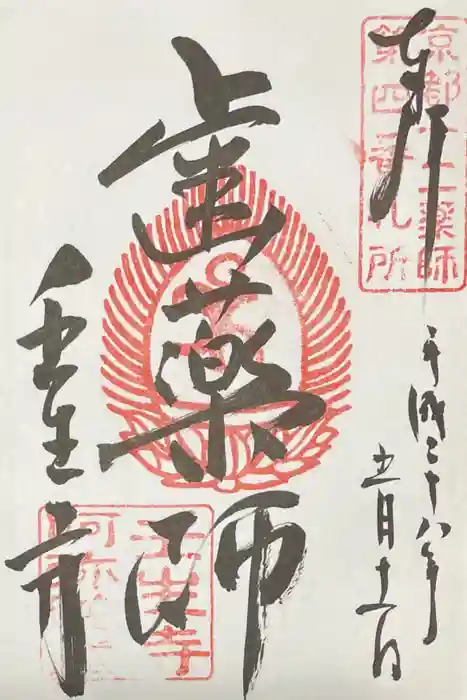 京都十二薬師
第四番札所
奉拝
平成二十八年
五月十一日
歯薬師
壬生寺
壬生寺